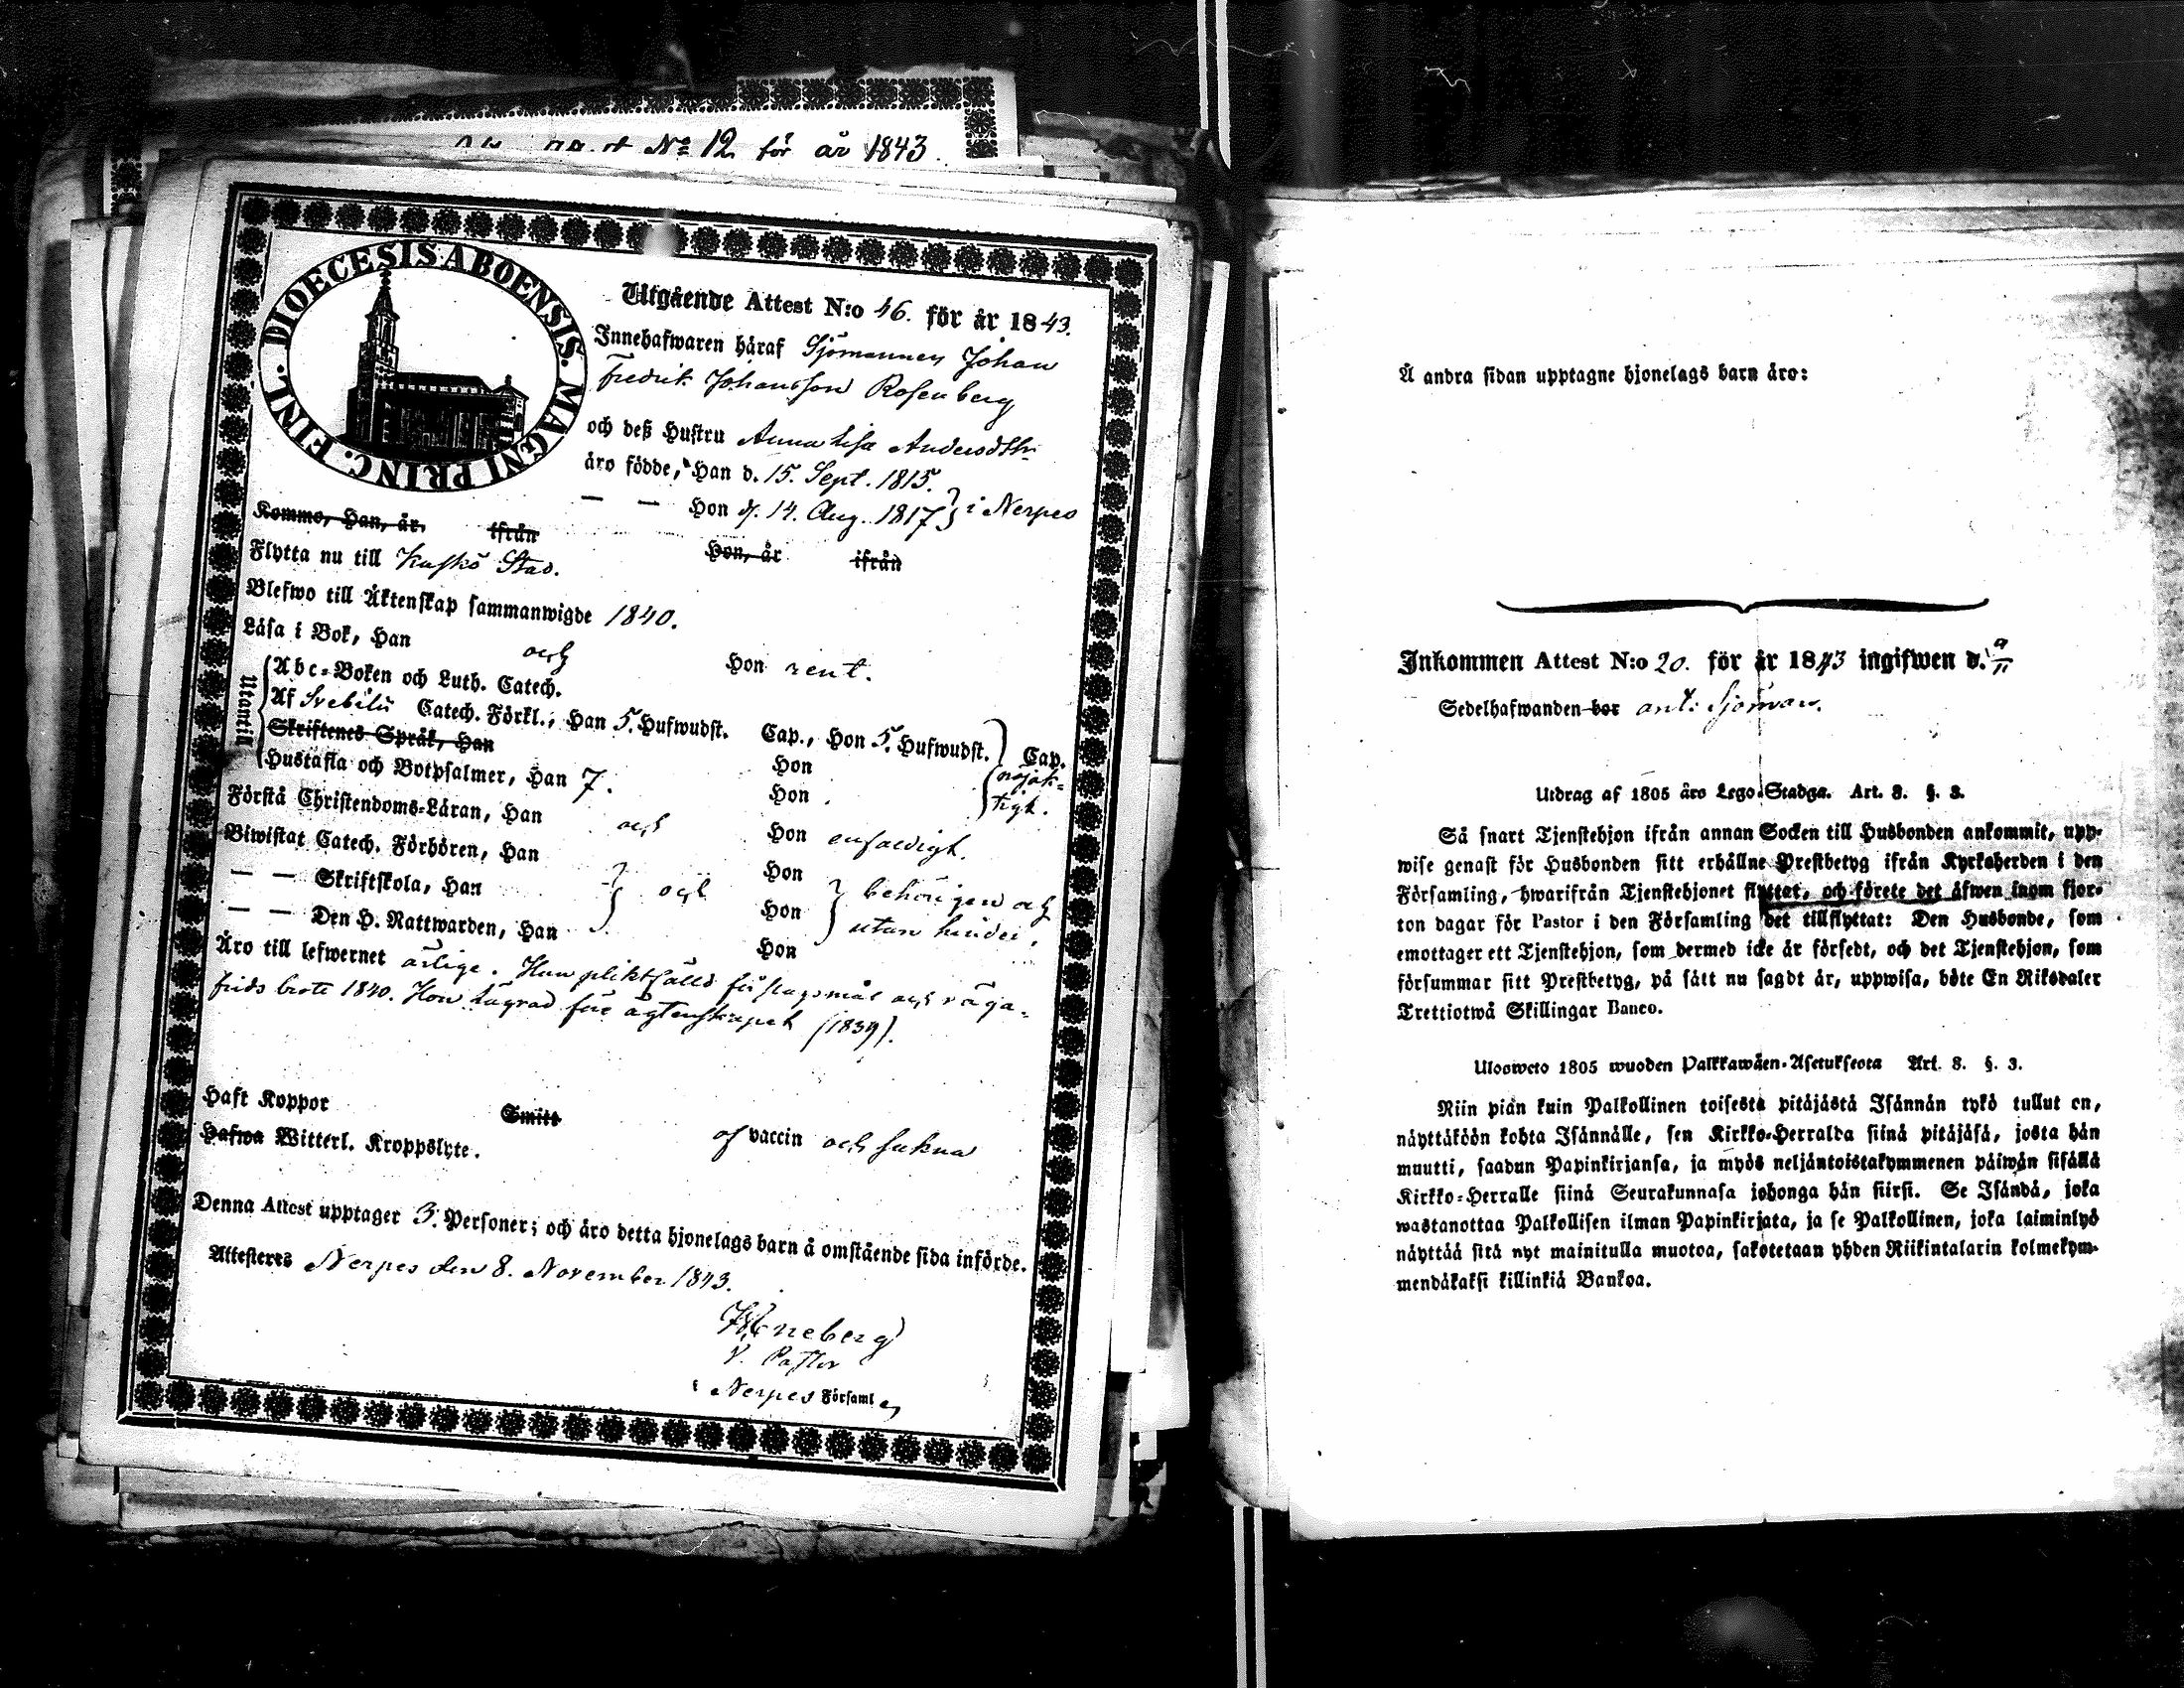 N:o 12 för år 1843
DIOECESIS ABOENSIS. MAGNI PRINC. FINL.
Utgående Attest N:o 46. för år 1843.
Innehafwaren häraf Sjömannen Johan
Fredrik Johansson Rosenberg
och deß Hustru Anna Lisa Andersdtr
äro födde, Han d. 15. Sept. 1815.
— — Hon d. 14. Aug. 1817 } i Nerpes
Kommo, Han, år. ifrån Hon, år ifrån
Flytta nu till Kaskö Stad.
Blefwo till Äktenskap sammanwigde 1840.
Läsa i Bok, Han och Hon rent.
Utantill
Abc-Boken och Luth. Catech.
Af Svebilii Catech. Förkl., Han 5. Hufwudst. Cap., Hon 5. Hufwudst. Cap.
Skriftenes Språk, Han Hon
Hustafla och Botpsalmer, Han 7. Hon nöjak-
tigt.
Förstå Christendoms-Läran, Han och Hon enfaldigt.
Biwistat Catech. Förhören, Han Hon
— — Skriftskola, Han och Hon behörigen och
— — Den H. Nattwarden, Han Hon utan hinder.
Äro till lefwernet ärlige. Han pliktfälld för slagsmål och väga-
frids brott 1840. Hon lägrad före ägtenskapet (1839).
Haft Koppor Smitt af vaccin och sakna
Hafwa Witterl. Kroppslyte.
Denna Attest upptager 3. Personer; och äro detta hjonelags barn å omstående sida införde.
Attesteras Nerpes den 8. November 1843.
V. Pastor
i Nerpes Församl
Å andra sidan upptagne hjonelags barn äro:
Inkommen Attest N:o 20. för år 1843 ingifwen d. 9/11
Sedelhafwanden bor ant: Sjöman.
Utdrag af 1805 års Lego-Stadga. Art. 8. §. 3.
Så snart Tjenstehjon ifrån annan Socken till Husbonden ankommit, upp-
wise genast för Husbonden sitt erhållne Prestbetyg ifrån Kyrkoherden i den
Församling, hwarifrån Tjenstehjonet flyttat, och förete det äfwen inom fjor-
ton dagar för Pastor i den Församling det tillflyttat: Den Husbonde, som
emottager ett Tjenstehjon, som dermed icke är försedt, och det Tjenstehjon, som
försummar sitt Prestbetyg, på sätt nu sagdt är, uppwisa, böte En Riksdaler
Trettiotwå Skillingar Banco.
Uloosweto 1805 wuoden Palkkawäen-Asetuksesta Art. 8. §. 3.
Niin pian kuin Palkollinen toisesta pitäjästä Isännän tykö tullut on,
näyttäköön kohta Isännälle, sen Kirkko-Herralda siinä pitäjäsä, josta hän
muutti, saadun Papinkirjansa, ja myös neljäntoistakymmenen päiwän sisällä
Kirkko-Herralle siinä Seurakunnasa johonga hän siirsi. Se Isändä, joka
wastanottaa Palkollisen ilman Papinkirjata, ja se Palkollinen, joka laiminlyö
näyttää sitä nyt mainitulla muotoa, sakotetaan yhden Riikintalarin kolmekym-
mendäkaksi killinkiä Bankoa.